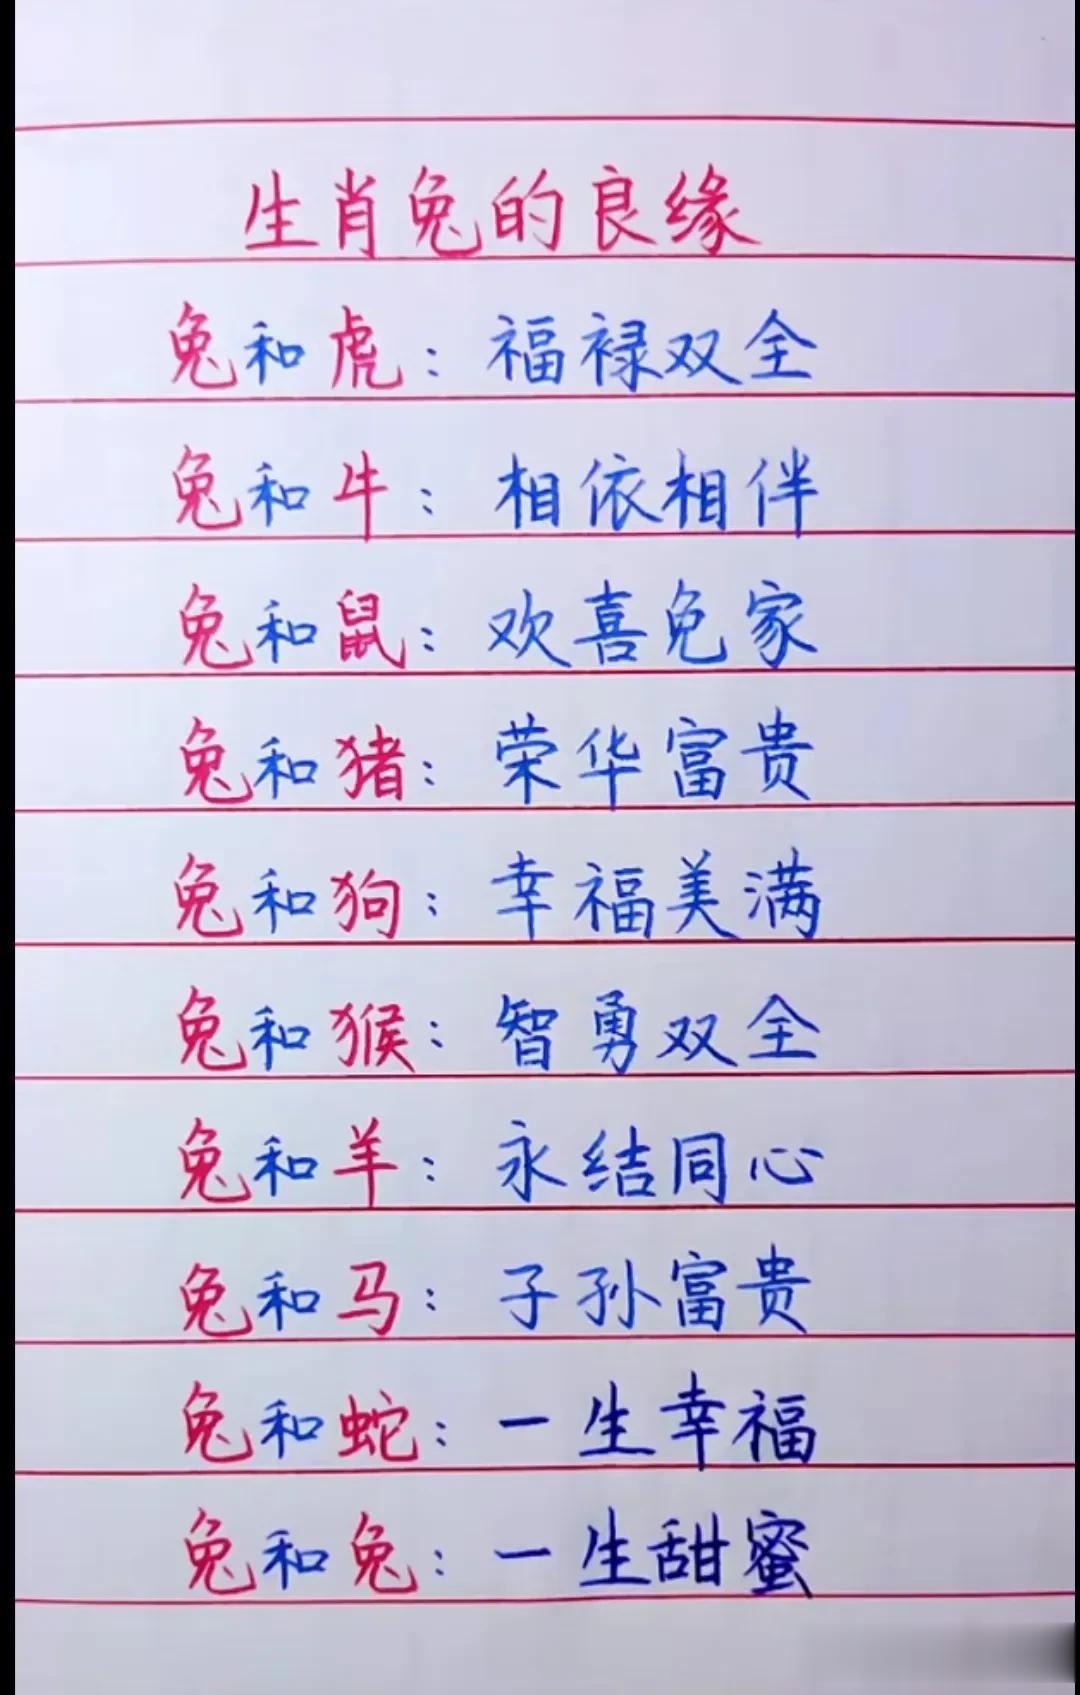 生肖兔的良缘
兔和虎：福禄双全
兔和牛：相依相伴
兔和鼠：欢喜免家
兔和猪：荣华富贵
兔和狗：幸福美满
兔和猴：智勇双全
兔和羊：永结同心
兔和马：子孙富贵
兔和蛇：一生幸福
兔和兔：一生甜蜜